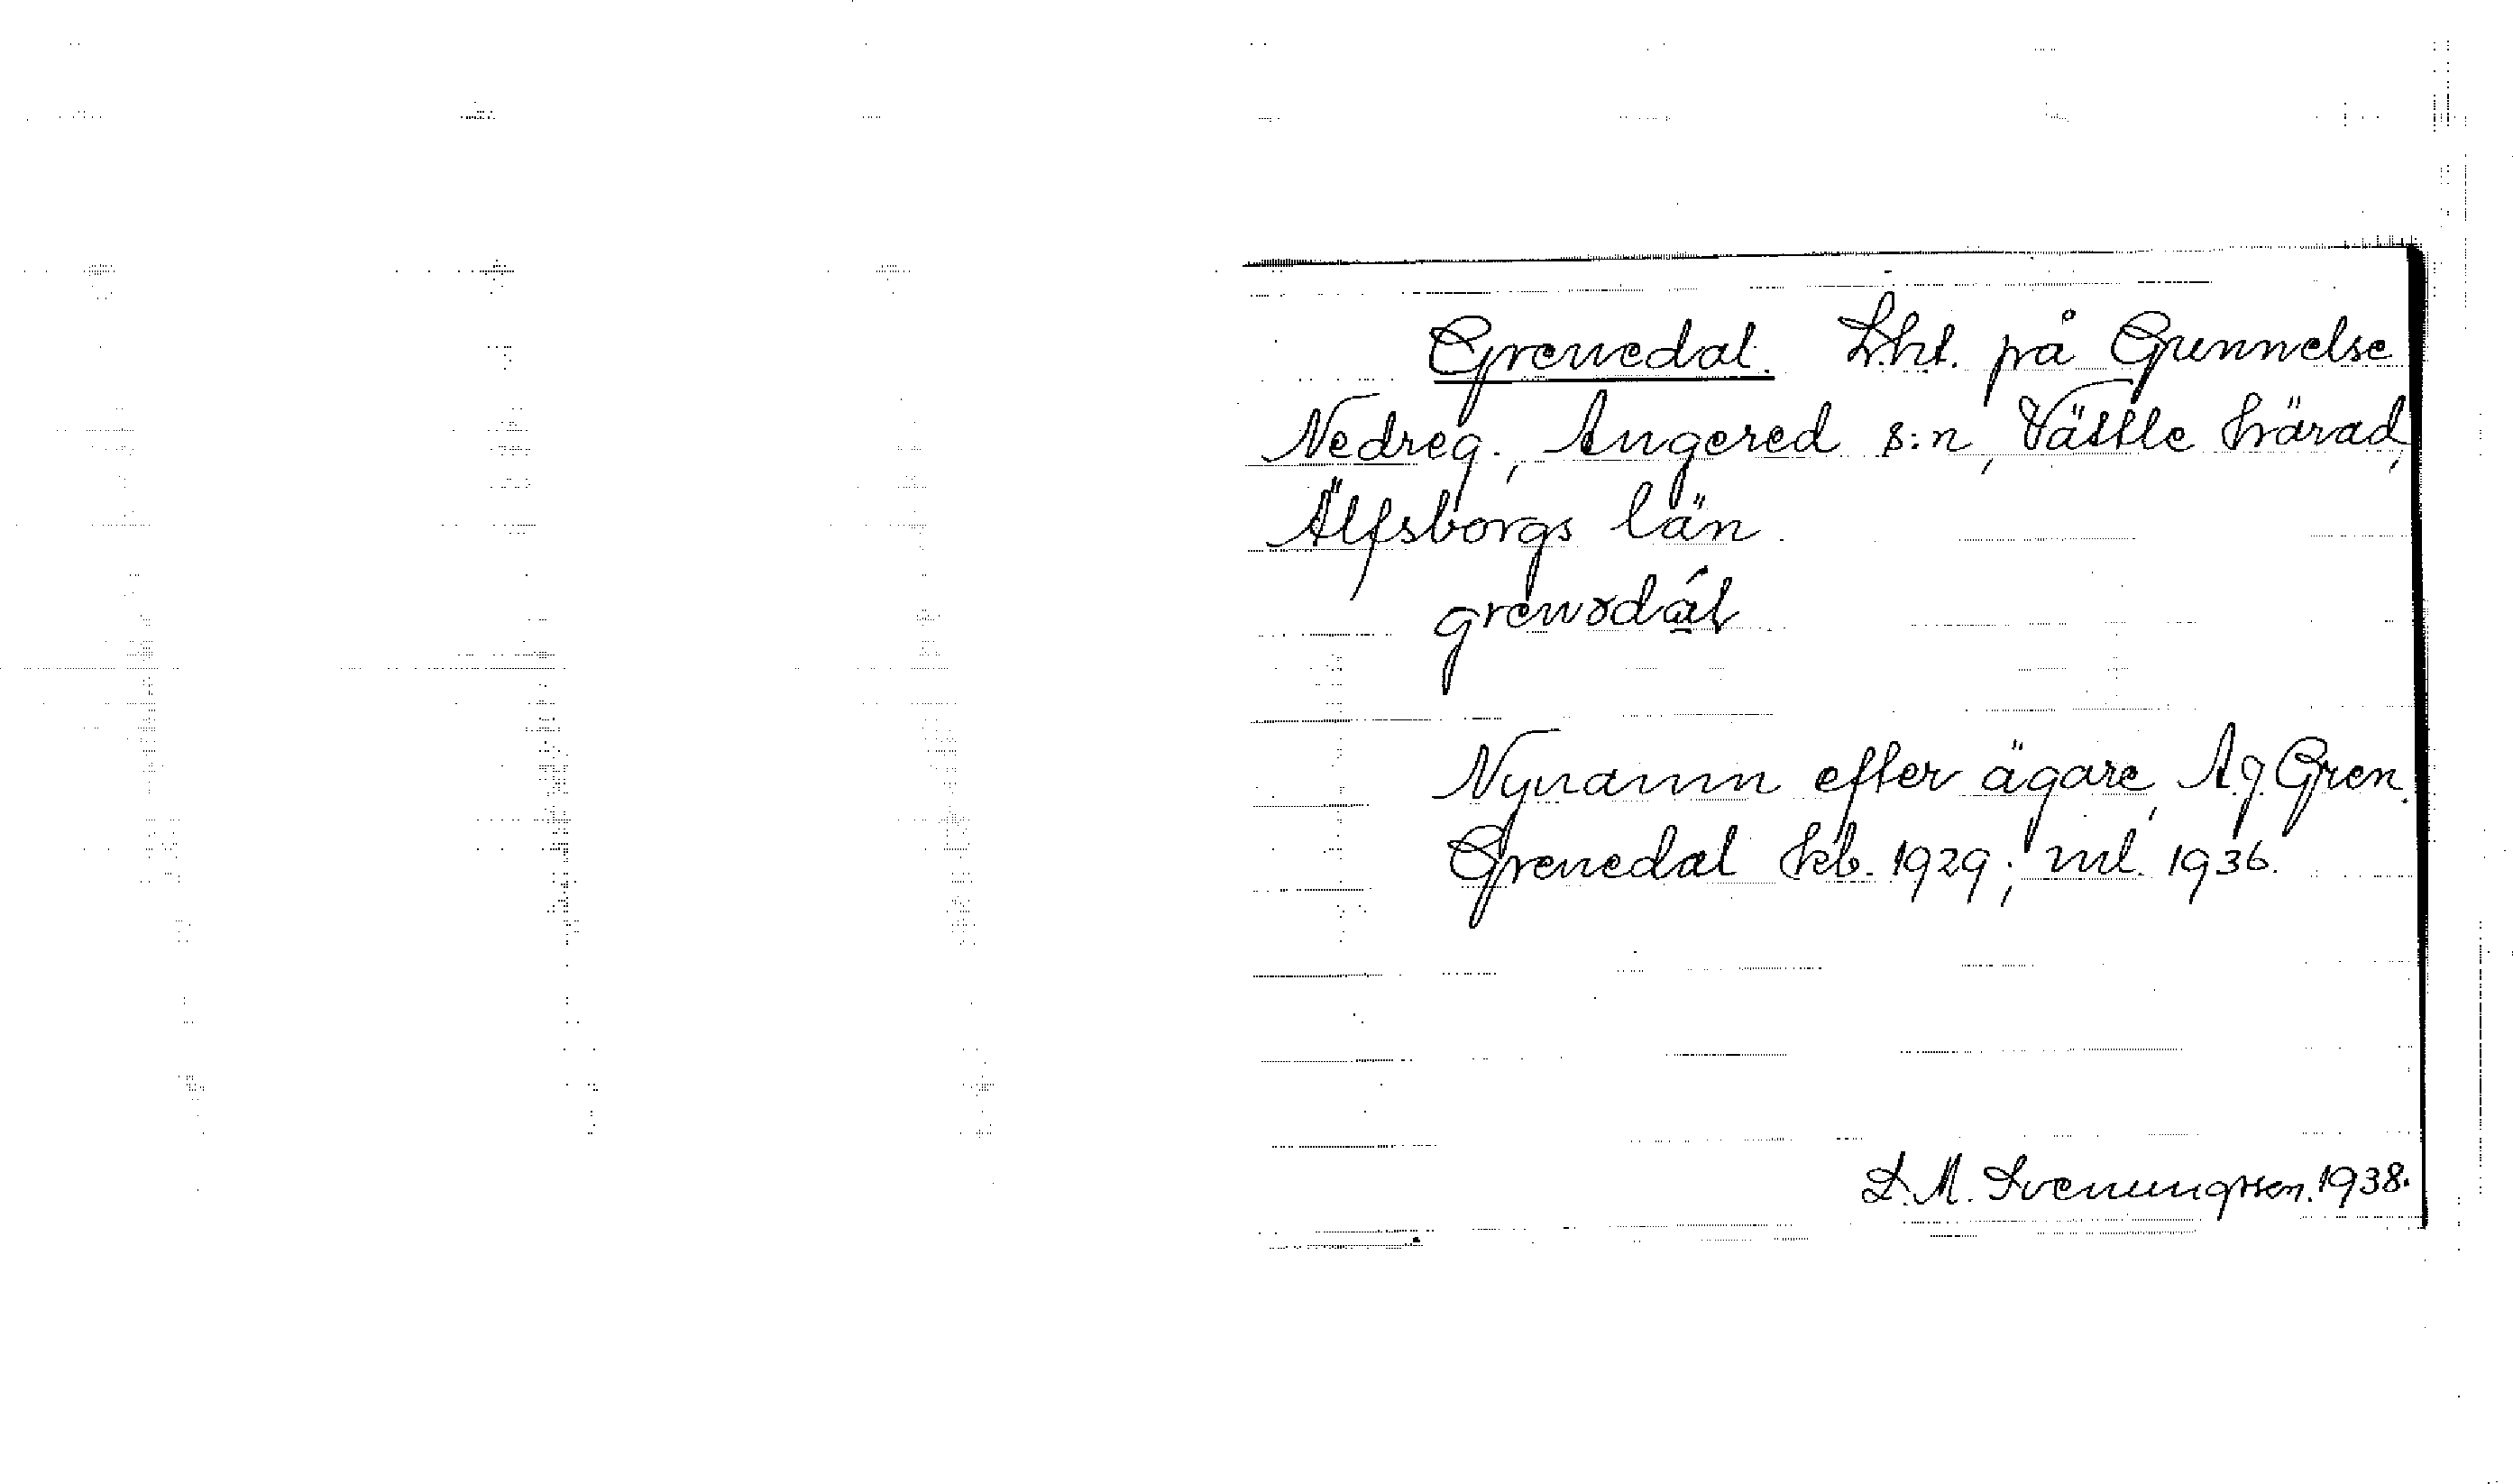 Grenedal. Lht. på Gunnelse
Nedreg., Angered s:n, Vättle härad,
Älfsborgs län.
grenədál
Nynamn efter ägare, A.g. Gren.
Grenedal kb. 1929; ml. 1936.
L.M. Svenungsson. 1938.